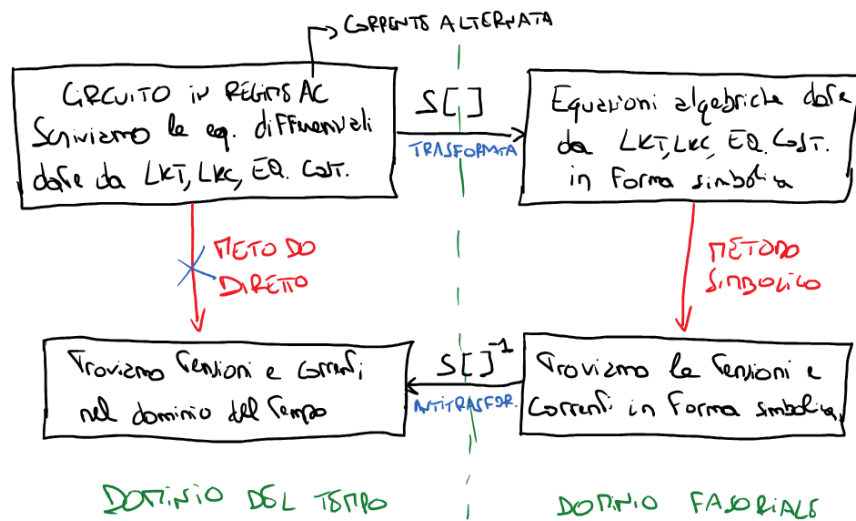 CORRENTE ALTERNATA
CIRCUITO IN REGIME AC
Scriviamo le eq. differenziali
date da LKT, LKC, EQ. COST.
S[ ]
TRASFORMATA
Equazioni algebriche date
da LKT, LKC, EQ. COST.
in forma simbolica
METODO
DIRETTO
METODO
SIMBOLICO
Troviamo tensioni e correnti
nel dominio del tempo
S[ ]⁻¹
ANTITRASFOR.
Troviamo le tensioni e
correnti in forma simbolica
DOMINIO DEL TEMPO
DOMINIO FASORIALE